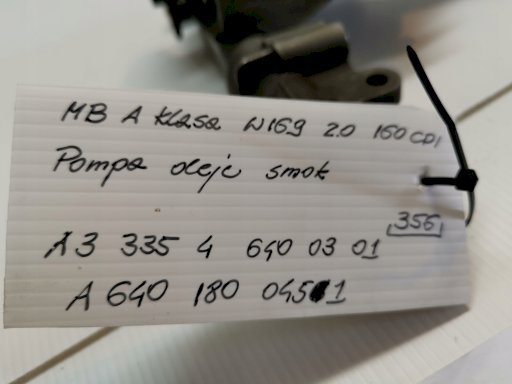 MB A klasa W169 2.0 160 CDI
Pompa oleju smok
356
A3 335 4 640 03 01
A 640 180 045 1